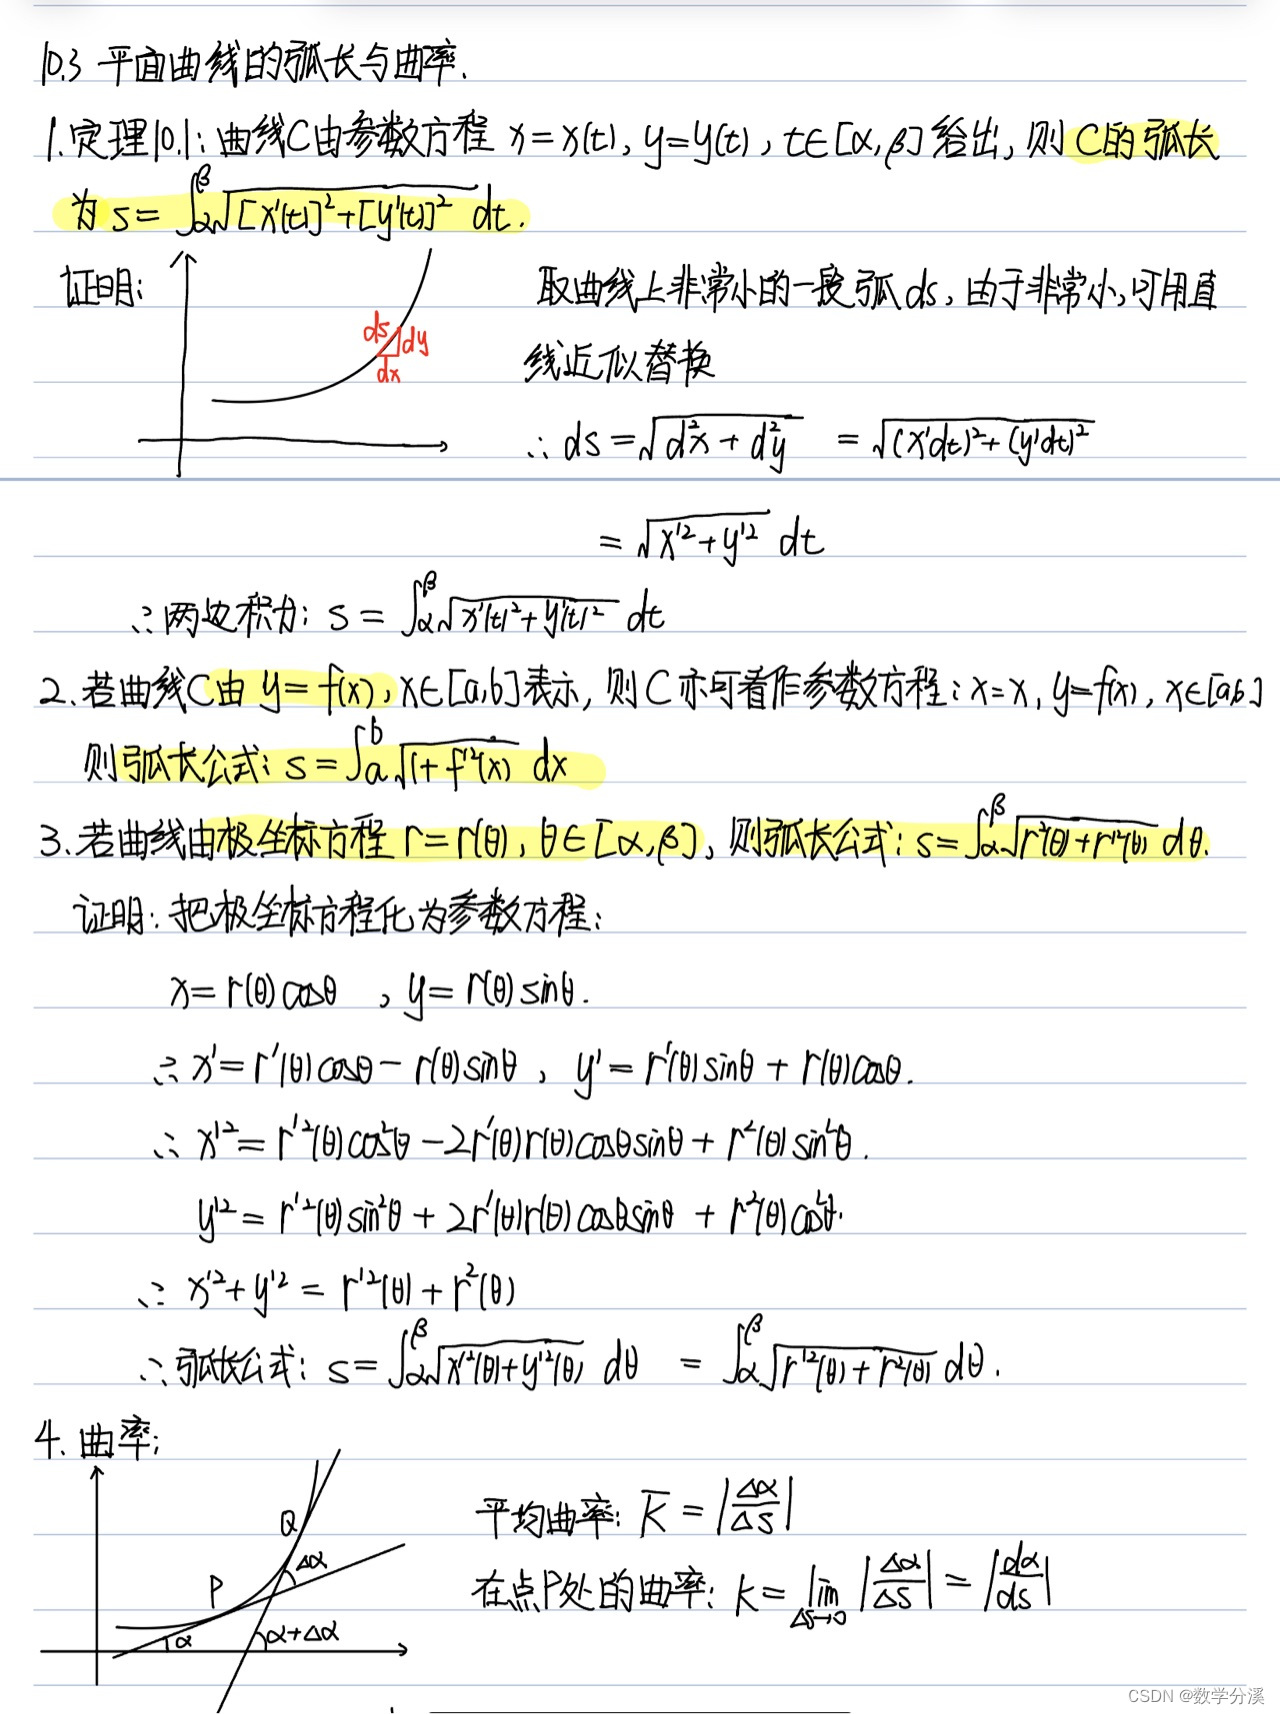 10.3 平面曲线的弧长与曲率.
1.定理10.1: 曲线C由参数方程 x=x(t), y=y(t), t∈[α,β]给出, 则C的弧长
为 s=∫_α^β √([x'(t)]²+[y'(t)]²) dt.
证明:
取曲线上非常小的一段弧ds, 由于非常小,可用直
线近似替换
ds
dy
dx
∴ ds=√(d²x+d²y) =√((x'dt)²+(y'dt)²)
=√(x'²+y'²) dt
∴两边积分: s=∫_α^β √(x'(t)²+y'(t)²) dt
2.若曲线C由 y=f(x), x∈[a,b]表示, 则C亦可看作参数方程: x=x, y=f(x), x∈[a,b]
则弧长公式: s=∫_a^b √(1+f'²(x)) dx
3.若曲线由极坐标方程 r=r(θ), θ∈[α,β], 则弧长公式: s=∫_α^β √(r²(θ)+r'²(θ)) dθ.
证明: 把极坐标方程化为参数方程:
x=r(θ)cosθ , y=r(θ)sinθ.
∴ x'=r'(θ)cosθ-r(θ)sinθ , y'=r'(θ)sinθ+r(θ)cosθ.
∴ x'²=r'²(θ)cos²θ-2r'(θ)r(θ)cosθsinθ+r²(θ)sin²θ.
y'²=r'²(θ)sin²θ+2r'(θ)r(θ)cosθsinθ+r²(θ)cos²θ.
∴ x'²+y'²=r'²(θ)+r²(θ)
∴弧长公式: s=∫_α^β √(x'²(θ)+y'²(θ)) dθ =∫_α^β √(r'²(θ)+r²(θ)) dθ.
4. 曲率:
平均曲率: K̅=|Δα/Δs|
在点P处的曲率: K=lim_{Δs→0} |Δα/Δs|=|dα/ds|
Q
Δα
P
α
α+Δα
CSDN @数学分溪